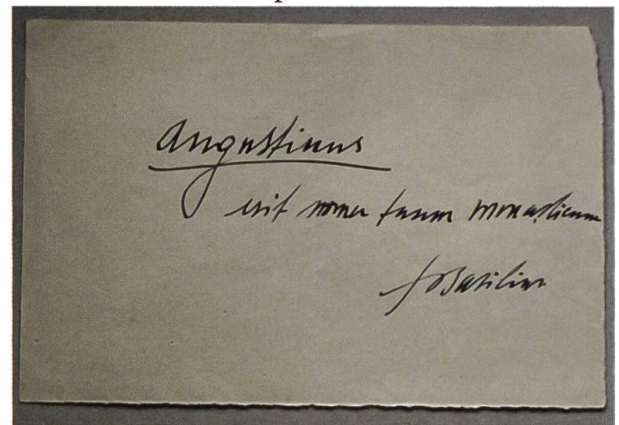 Augustinus
erit nomen tuum monasticum
+ Basilius